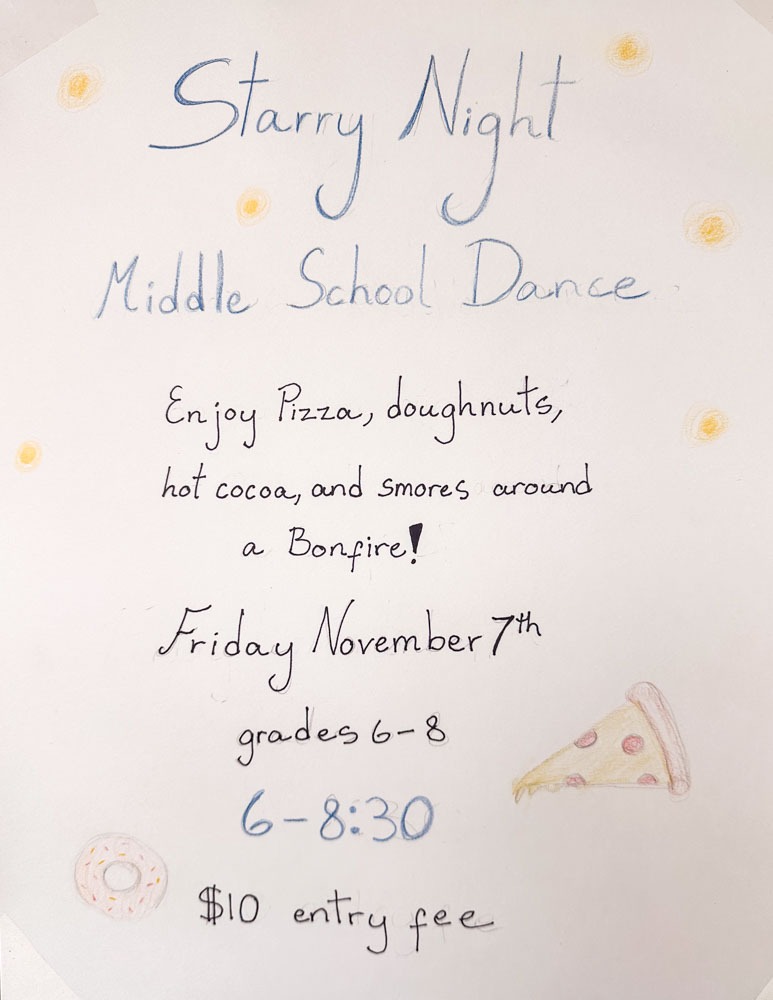 Starry Night
Middle School Dance
Enjoy Pizza, doughnuts,
hot cocoa, and smores around
a Bonfire!
Friday November 7th
grades 6-8
6-8:30
$10 entry fee